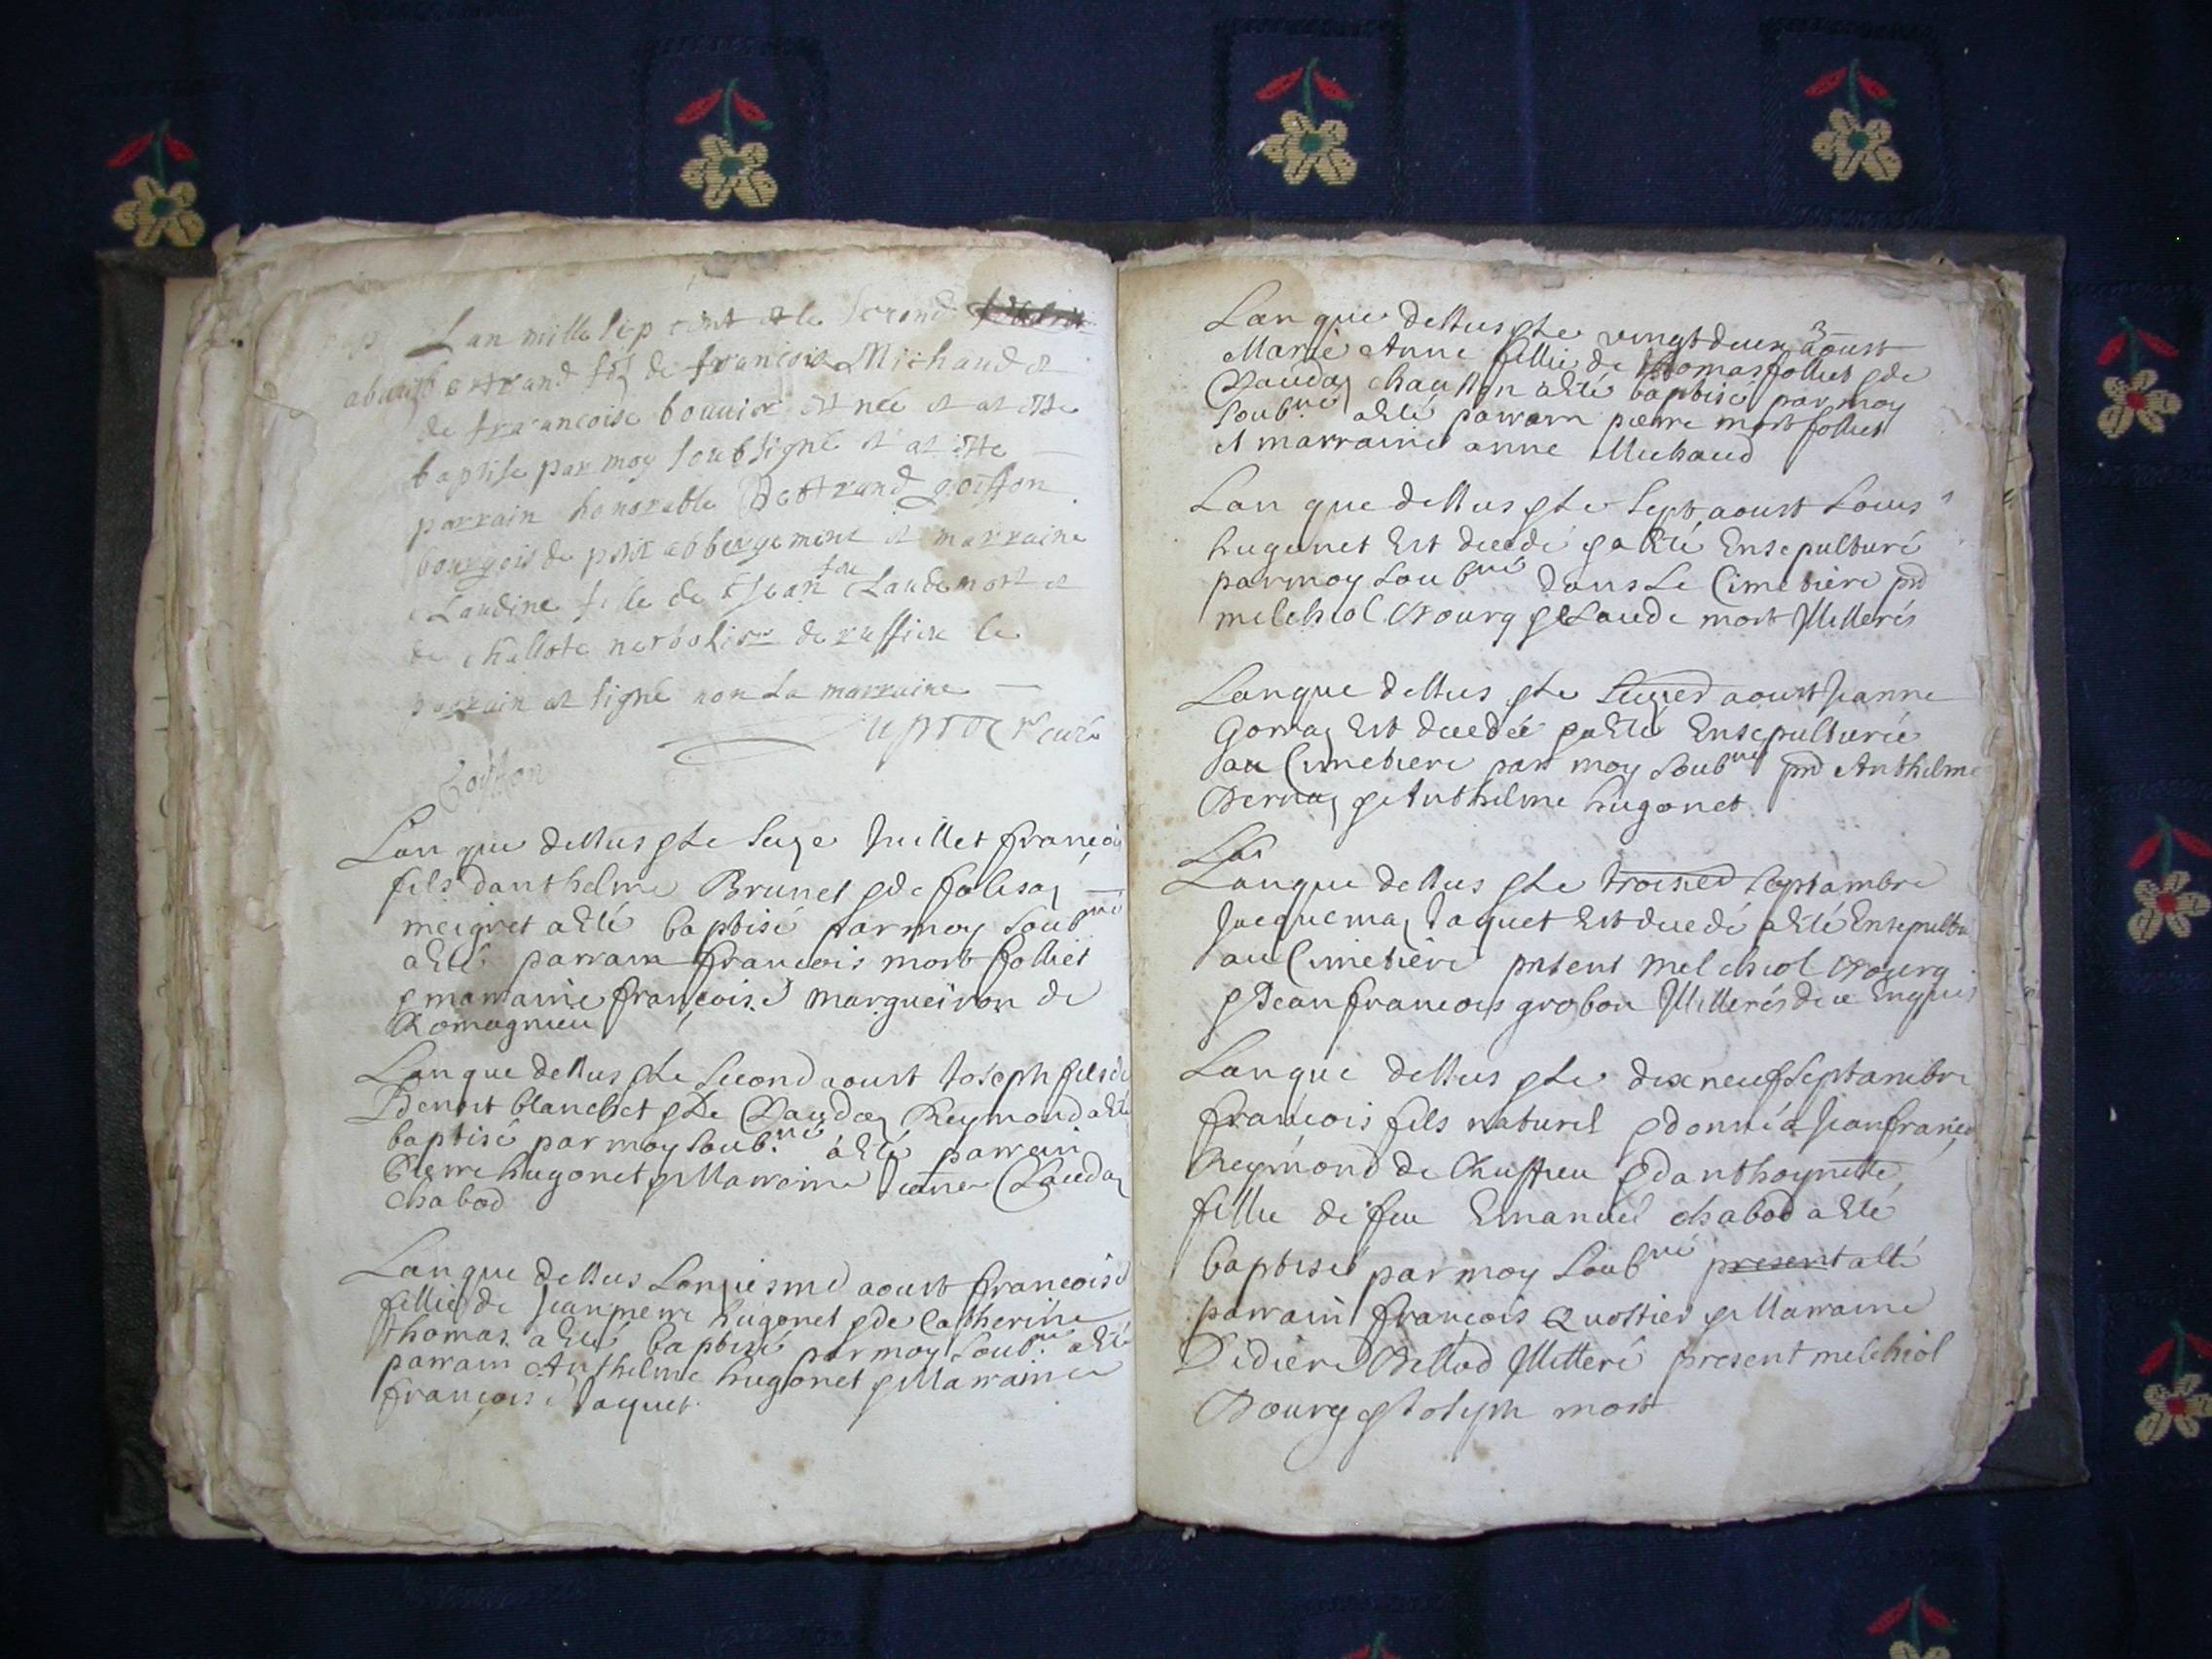 Lan mille sept cent et le second
bertrand fils de francois Michaud et
de francoise bouvier est née et at este
baptise par moy soubsigné et at este
parrain honorable Bertrand goiffon
bourgois de petit abbergement et marraine
Claudine fille de Jean Claude mort et
de
parrain at signé non la marraine
curé
Goiffon
Lan que dessus & le seize Juillet françois
fils danthelme Brunet & de
meigret a esté baptisé par moy soub.né
a esté parrain François mort follliet
& marraine françoise margueiron de
Romagnieu
Lan que dessus & le second aoust Joseph fils de
Benoit blanchet & de Clauda Reymond a esté
baptisé par moy soub.né a esté parrain
Pierre hugonet & Marraine Jeanne Clauda
chabod
Lan que dessus Lonziesme aoust francoise
fillie de Jeanpierre hugonet & de Catherine
thomas a esté baptisé par moy soub.né a esté
parrain Anthelme hugonet & Marraine
françoise Jaquet
Lan que dessus & le vingt deux aoust
Marie Anne fillie de thomas folliet & de
Clauda a esté baptisé par moy
soub.né a esté parrain pierre mort folliet
et marraine anne Michaud
Lan que dessus & le sept aoust Louis
hugonet est decedé & a esté Ensepulturé
par moy soub.né dans Le Cimetiere pnt
melchiol Bourg & Claude mort Illiterés
Lan que dessus & le aoust Jeanne
est decedée & a esté Ensepulturée
au Cimetiere par moy soub.né pnt Anthelme
& Anthelme hugonet
Lan
Lan que dessus & le troisied septambre
Jacquema Jaquet est decedé a esté Ensepultu
au Cimetière pntent melchiol Bourg
& Jean François grobon Illiterés de ce Enquis
Lan que dessus & le dix neuf Septambre
françois fils naturel & donné a Jean françois
Reymond de Chuffieu & danthoynette
fillie de feu Emanuel chabod a esté
baptisé par moy Soub.né present a esté
parrain françois & Marraine
Didiere Billiod Illitteré present melchiol
Bourg & Joseph mort